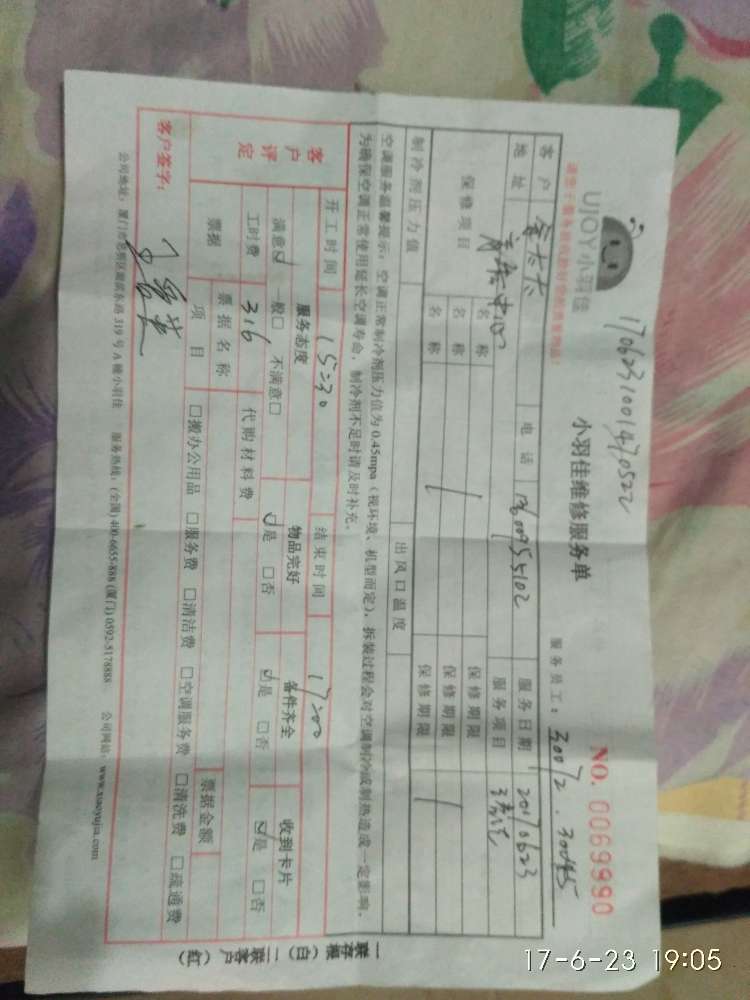 1706231001470522
UJOY小羽佳
小羽佳维修服务单
NO. 0069990
服务员工：30072.30045
客户
电话
服务日期 20170623
地址
服务项目
保修项目
名称
保修期限
名称
保修期限
名称
保修期限
制冷剂压力值
出风口温度
空调服务温馨提示：空调正常制冷剂压力值为0.45mpa（视环境、机型而定），拆装过程会对空调制冷或制热造成一定影响，
为确保空调正常使用延长空调寿命，制冷剂不足时请及时补充。
开工时间 15:30
结束时间 17:00
客户评定
服务态度
物品完好
备件齐全
收到卡片
满意☑ 一般□ 不满意□
☑是 □否
☑是 □否
☑是 □否
工时费 316
代购材料费
票据
票据名称
票据金额
项目
□搬办公用品 □服务费 □清洁费 □空调服务费 □清洗费 □疏通费
客户签字：
公司地址：厦门市思明区湖滨东路319号A幢小羽佳 服务热线：(全国) 400-6655-888 (厦门) 0592-5178888 公司网站：www.xiaoyujia.com
一联存根（白）二联客户（红）
17-6-23 19:05